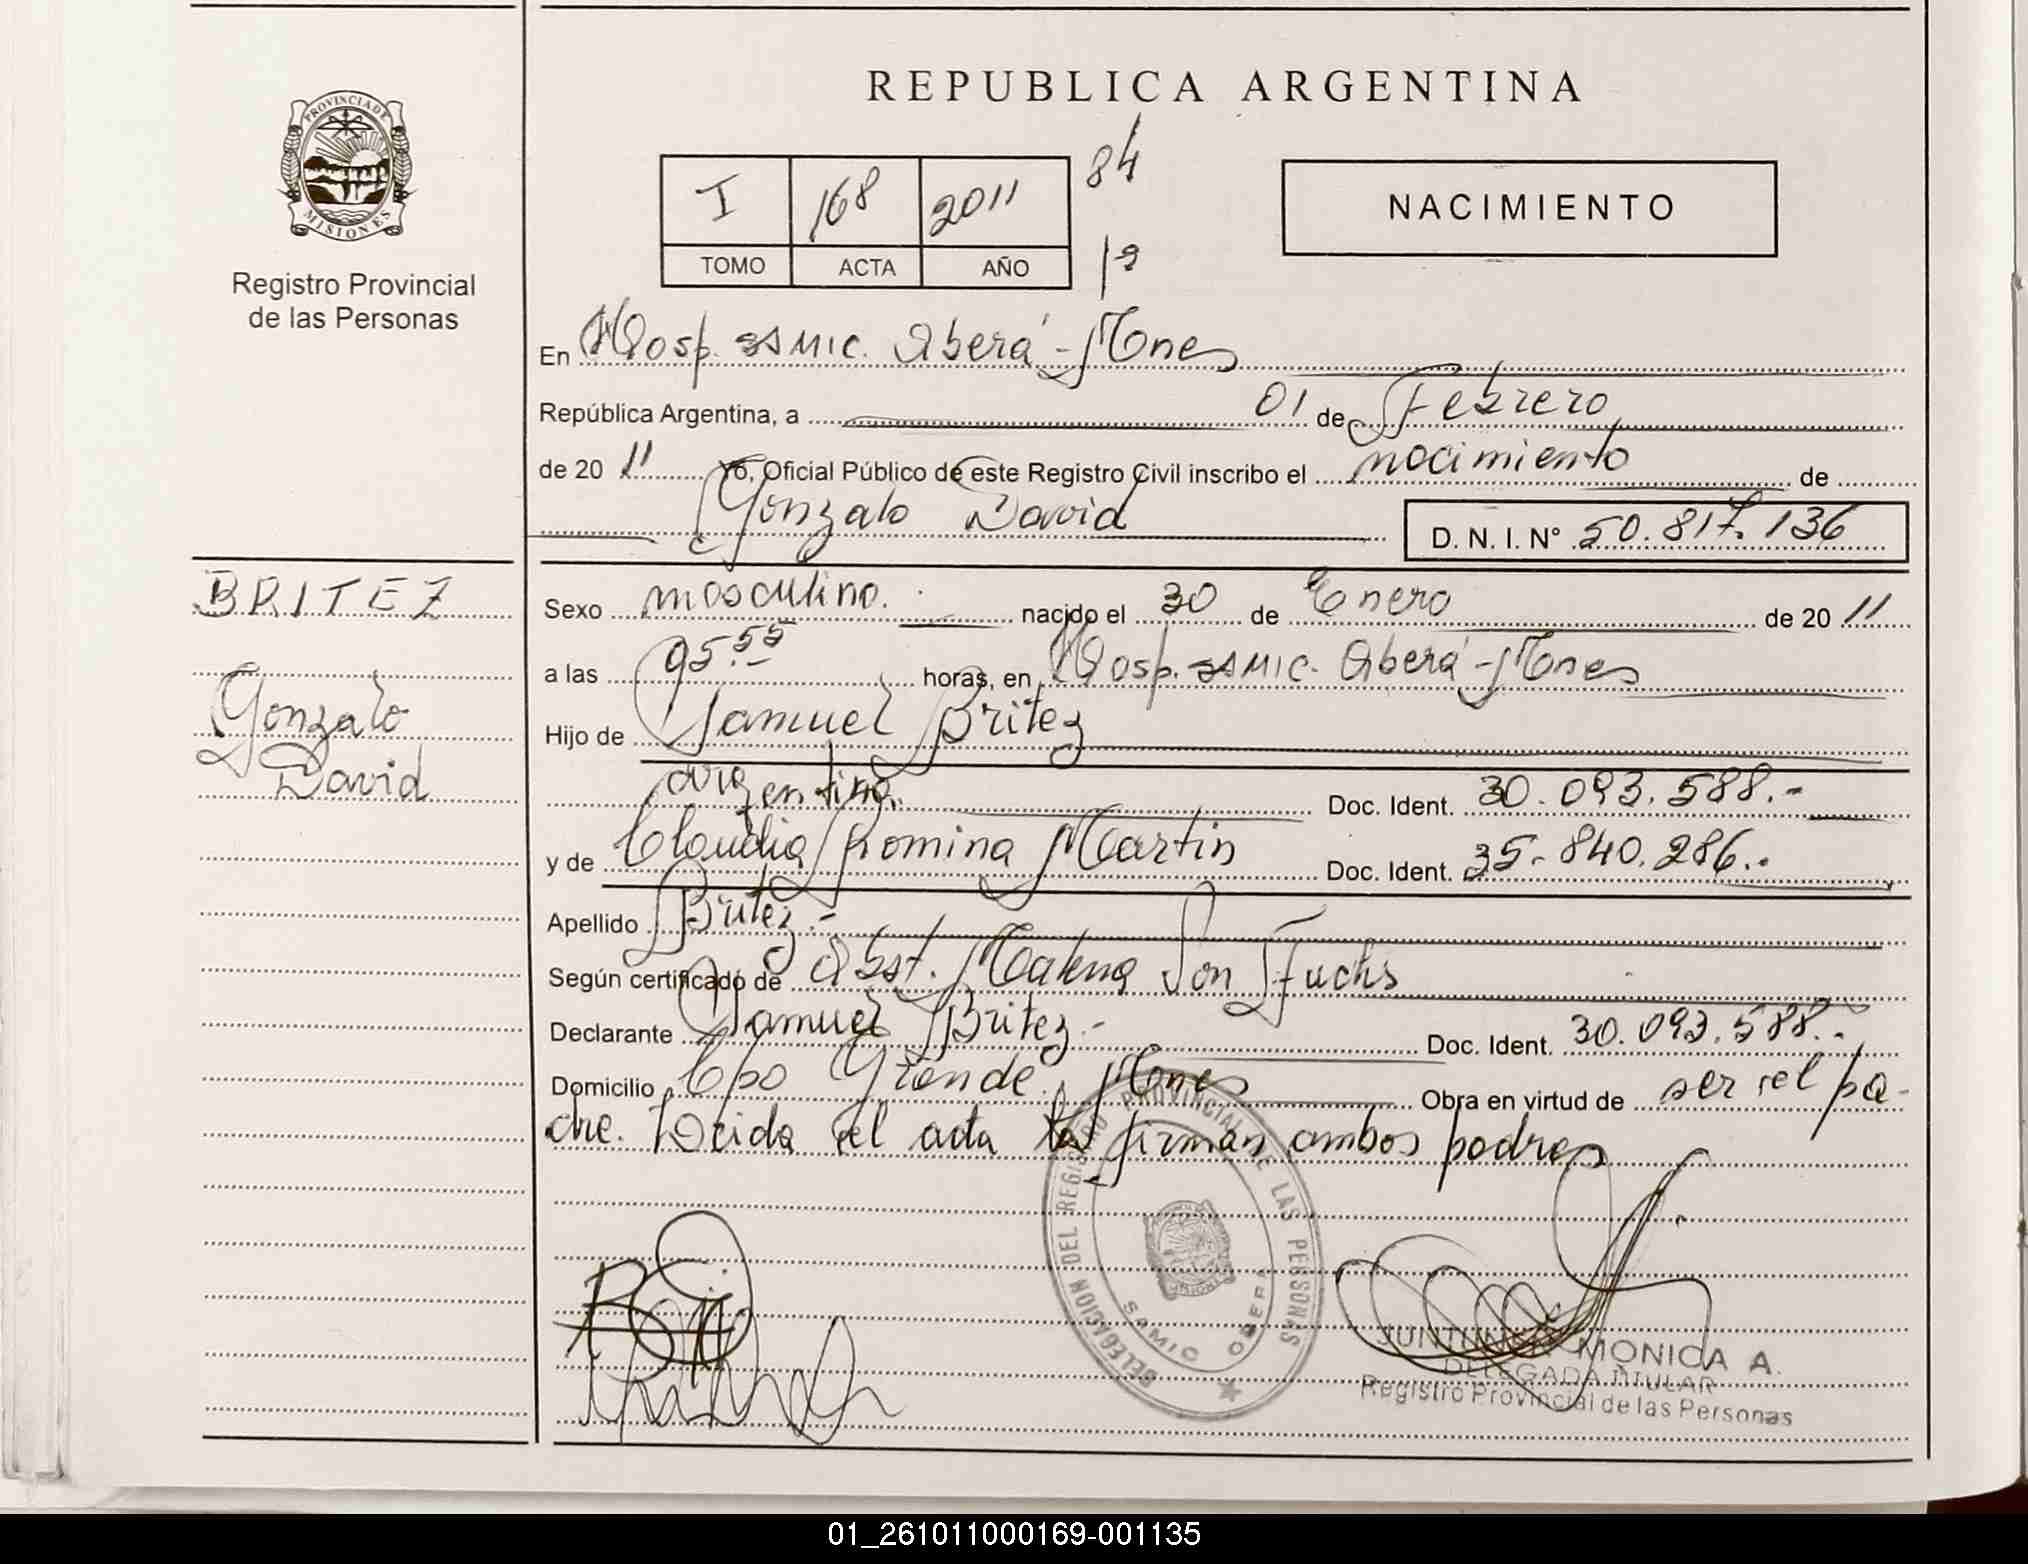 REPUBLICA ARGENTINA
PROVINCIA DE MISIONES
Registro Provincial
de las Personas
I 168 2011 84
TOMO ACTA AÑO
NACIMIENTO
En Hosp. SAMIC. Oberá - Mnes
República Argentina, a 01 de Febrero
de 20 11 Yo, Oficial Público de este Registro Civil inscribo el nacimiento de
Gonzalo David D. N. I. Nº 50.817.136
BRITEZ
Gonzalo
David
Sexo masculino. nacido el 30 de Enero de 20 11
a las 05.55 horas, en Hosp. SAMIC. Oberá - Mnes
Hijo de Samuel Britez
argentino. Doc. Ident. 30.093.588.-
y de Claudia Romina Martin Doc. Ident. 35.840.286.-
Apellido Britez.-
Según certificado de Obst. Malena Von Fuchs
Declarante Samuel Britez.- Doc. Ident. 30.093.588.-
Domicilio Cpo Grande. Mnes Obra en virtud de ser el pa-
dre. Leida el acta la firman ambos padres
DELEGACION DEL REGISTRO PROVINCIAL DE LAS PERSONAS
SAMIC OBERA
MONICA A.
DELEGADA TITULAR
Registro Provincial de las Personas
01_261011000169-001135